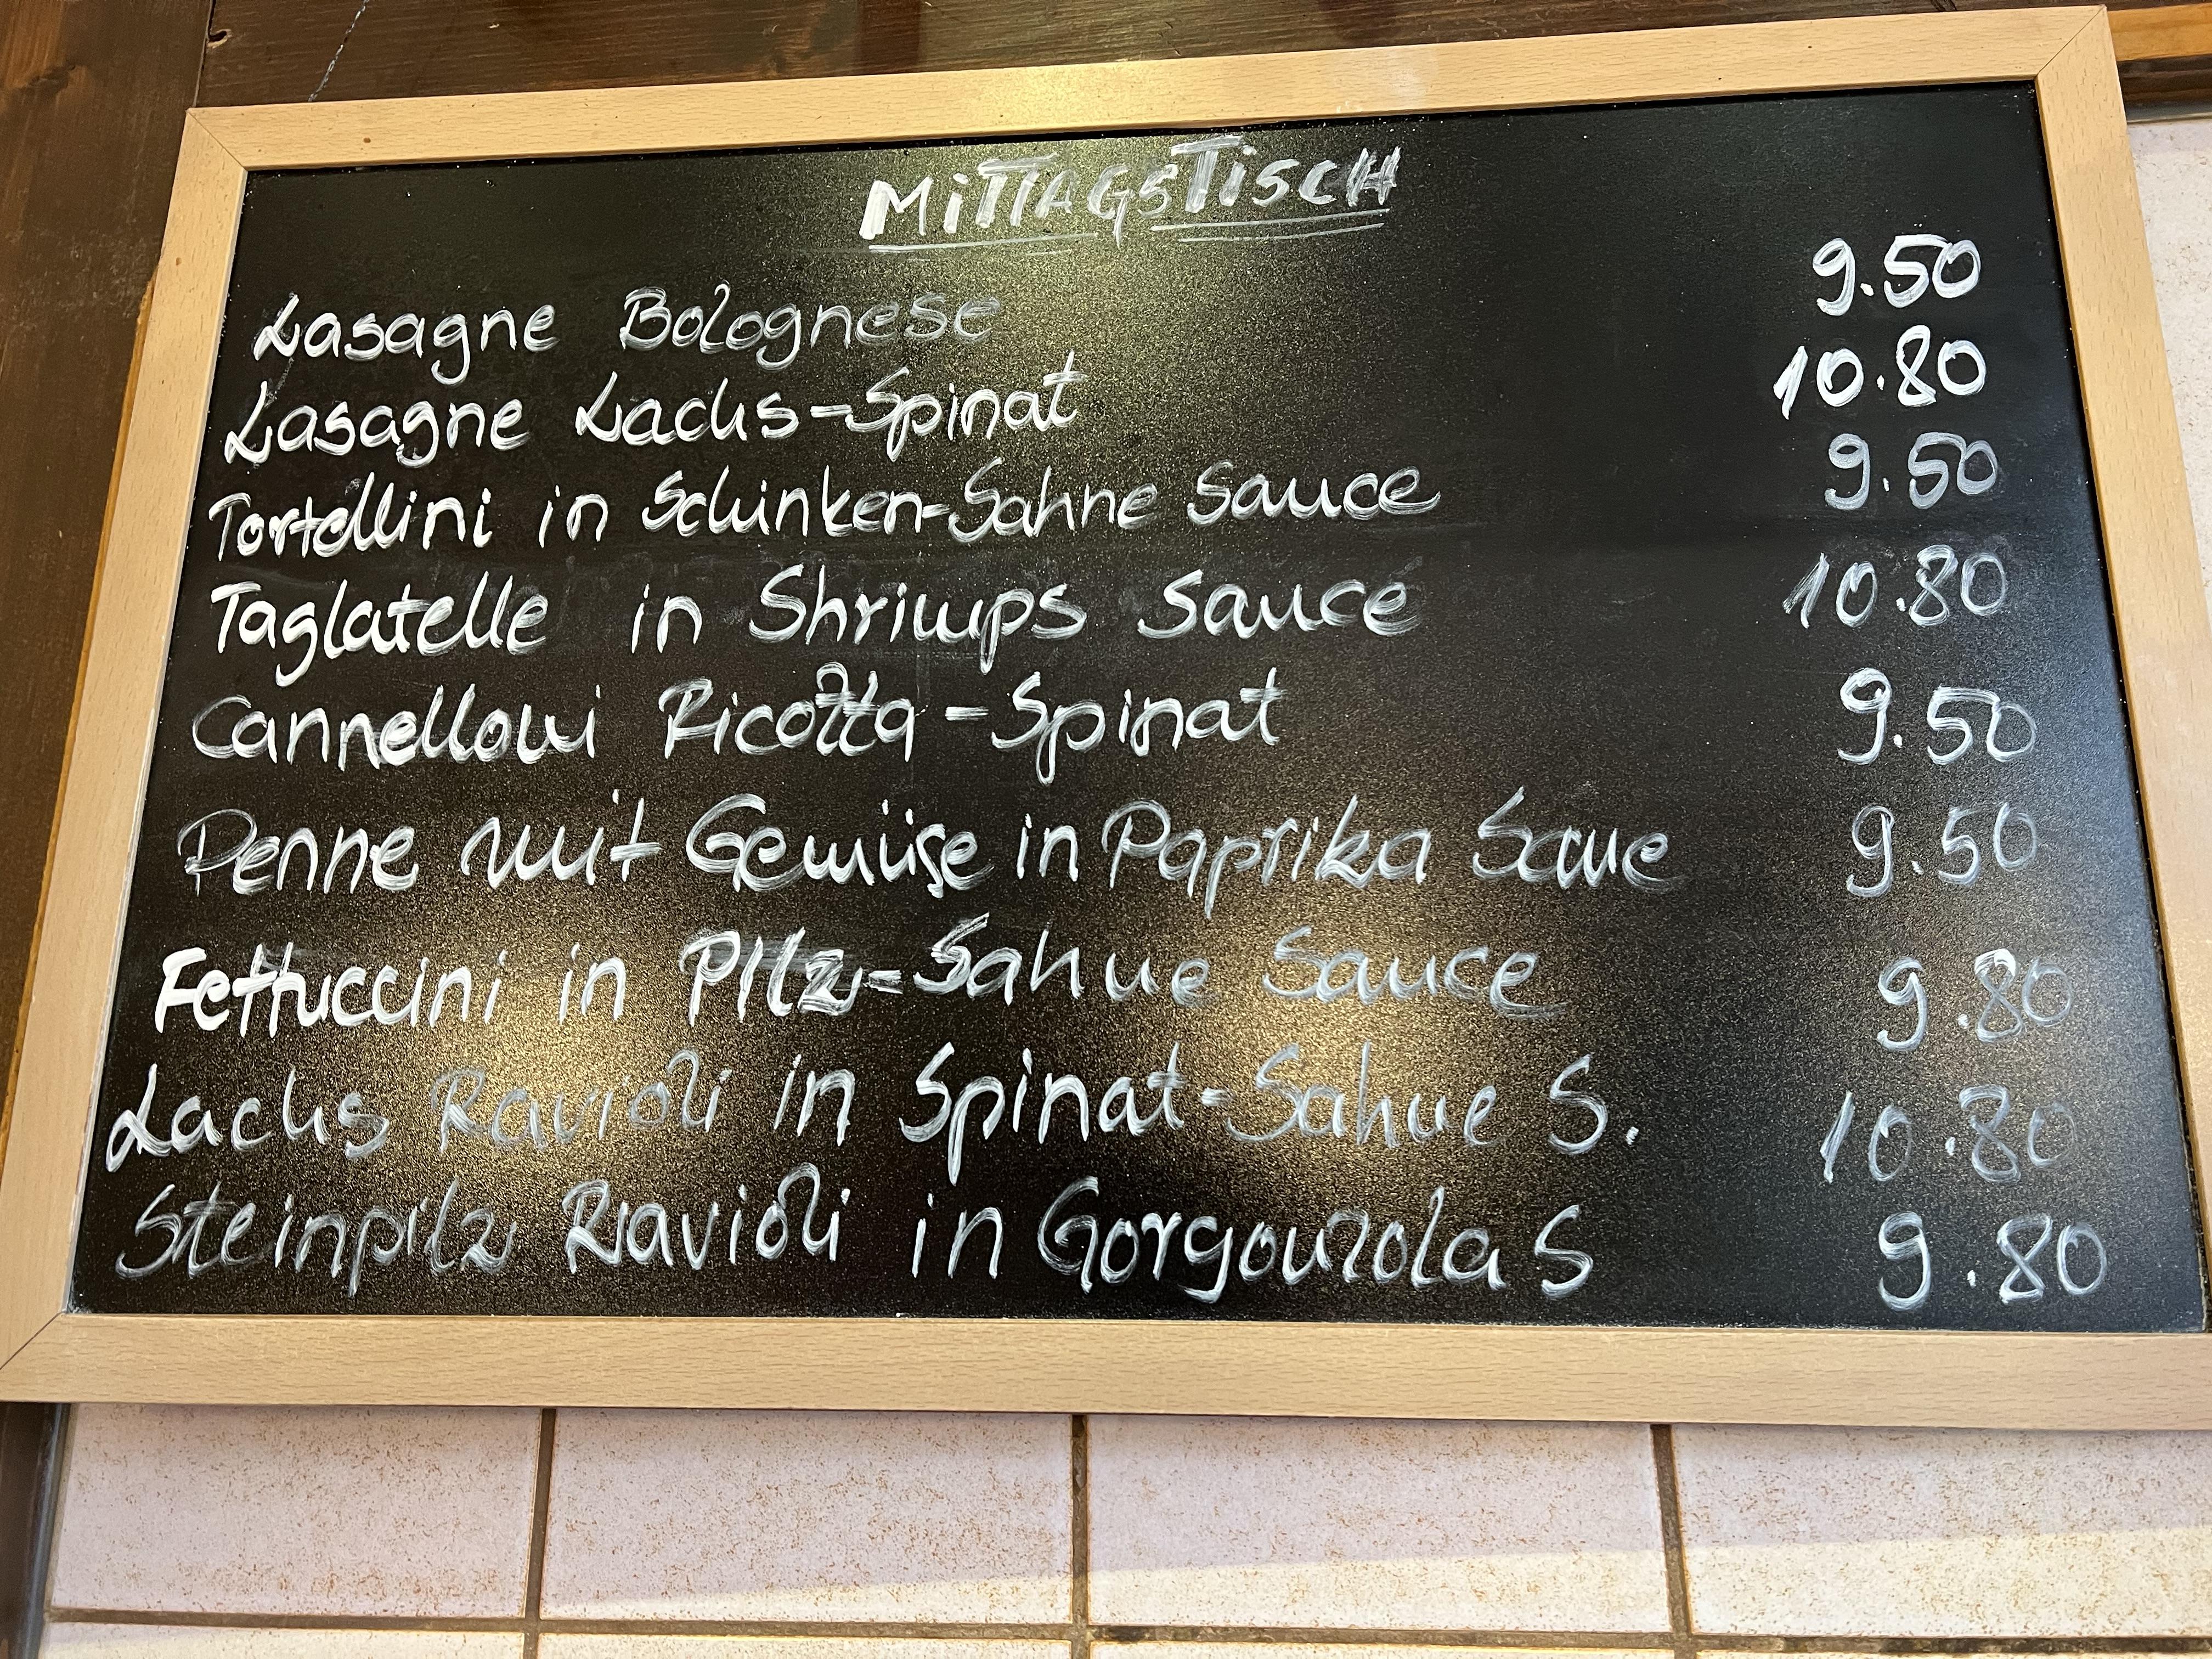 MITTAGSTISCH
Lasagne Bolognese 9.50
Lasagne Lachs-Spinat 10.80
Tortellini in Schinken-Sahne Sauce 9.50
Taglatelle in Shrimps Sauce 10.80
Cannelloni Ricotta-Spinat 9.50
Penne mit Gemüse in Paprika Saue 9.50
Fettuccini in Pilz-Sahne Sauce 9.80
Lachs Ravioli in Spinat-Sahne S. 10.80
Steinpilz Ravioli in Gorgonzola S 9.80